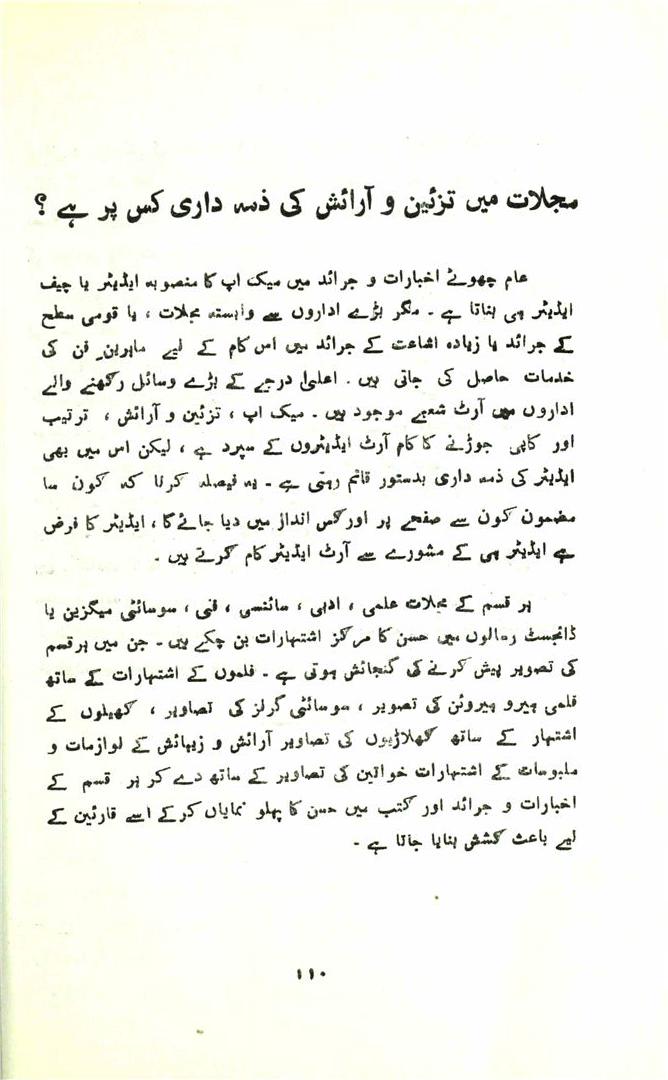 مجلات میں تزئین و آرائش کی ذمہ داری کس پر ہے ؟
عام چھوٹے اخبارات و جرائد میں میک اپ کا منصوبہ ایڈیٹر یا چیف
ایڈیٹر ہی بناتا ہے ۔ مگر بڑے اداروں سے وابستہ مجلات ، یا قومی سطح
کے جرائد یا زیادہ اشاعت کے جرائد میں اس کام کے لیے ماہرین فن کی
خدمات حاصل کی جاتی ہیں ۔ اعلیٰ درجے کے بڑے وسائل رکھنے والے
اداروں میں آرٹ شعبے موجود ہیں ۔ میک اپ ، تزئین و آرائش ، ترتیب
اور کاپی جوڑنے کا کام آرٹ ایڈیٹروں کے سپرد ہے ، لیکن اس میں بھی
ایڈیٹر کی ذمہ داری بدستور قائم رہتی ہے ۔ یہ فیصلہ کرنا کہ کون سا
مضمون کون سے صفحے پر اور کس انداز میں دیا جائے گا ، ایڈیٹر کا فرض
ہے ایڈیٹر ہی کے مشورے سے آرٹ ایڈیٹر کام کرتے ہیں ۔
ہر قسم کے مجلات علمی ، ادبی ، سائنسی ، فنی ، سوسائٹی میگزین یا
ڈائجسٹ رسالوں میں حسن کا مرکز اشتہارات بن چکے ہیں ۔ جن میں ہر قسم
کی تصویر پیش کرنے کی گنجائش ہوتی ہے ۔ فلموں کے اشتہارات کے ساتھ
فلمی ہیرو ہیروئن کی تصویر ، سوسائٹی گرلز کی تصاویر ، کھیلوں کے
اشتہار کے ساتھ کھلاڑیوں کی تصاویر آرائش و زیبائش کے لوازمات و
ملبوسات کے اشتہارات خواتین کی تصاویر کے ساتھ دے کر ہر قسم کے
اخبارات و جرائد اور کتب میں حسن کا پہلو نمایاں کرکے اسے قارئین کے
لیے باعث کشش بنایا جاتا ہے ۔
۱۱۰